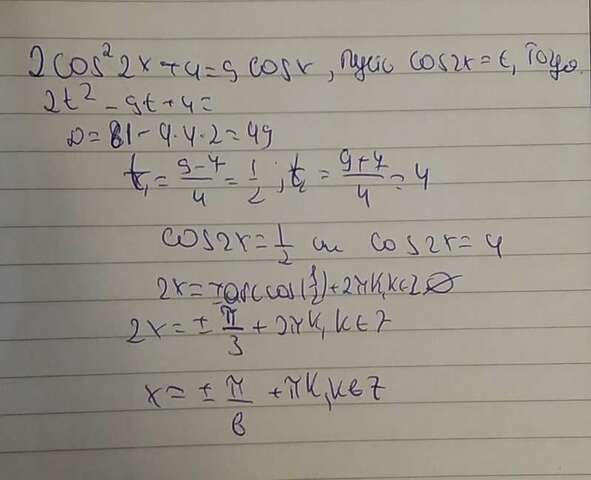 2cos²2x+4=9cosx, пусть cos2x=t, Тогда
2t²-9t+4=
D=81-4·4·2=49
t₁=(9-7)/4=1/2; t₂=(9+7)/4=4
cos2x=1/2 или cos2x=4
2x=±arccos(1/2)+2πk,k∈Z ∅
2x=±π/3+2πk,k∈Z
x=±π/6+πk,k∈Z